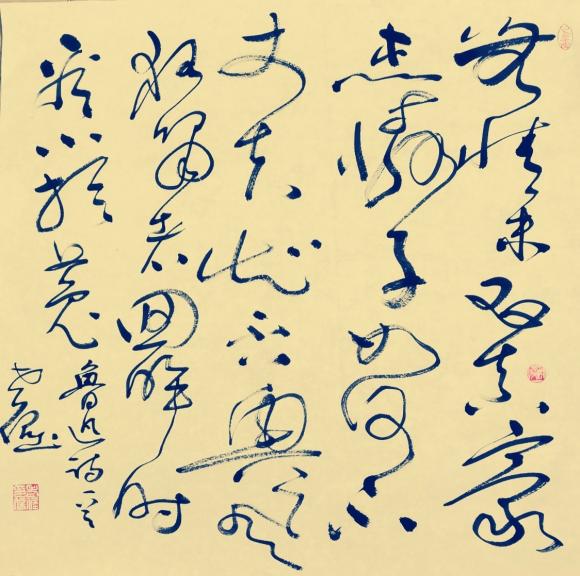 無情未必真豪
杰憐子如何不
丈夫知否興風
狂嘯者回眸时
看小於菟
魯迅诗一首